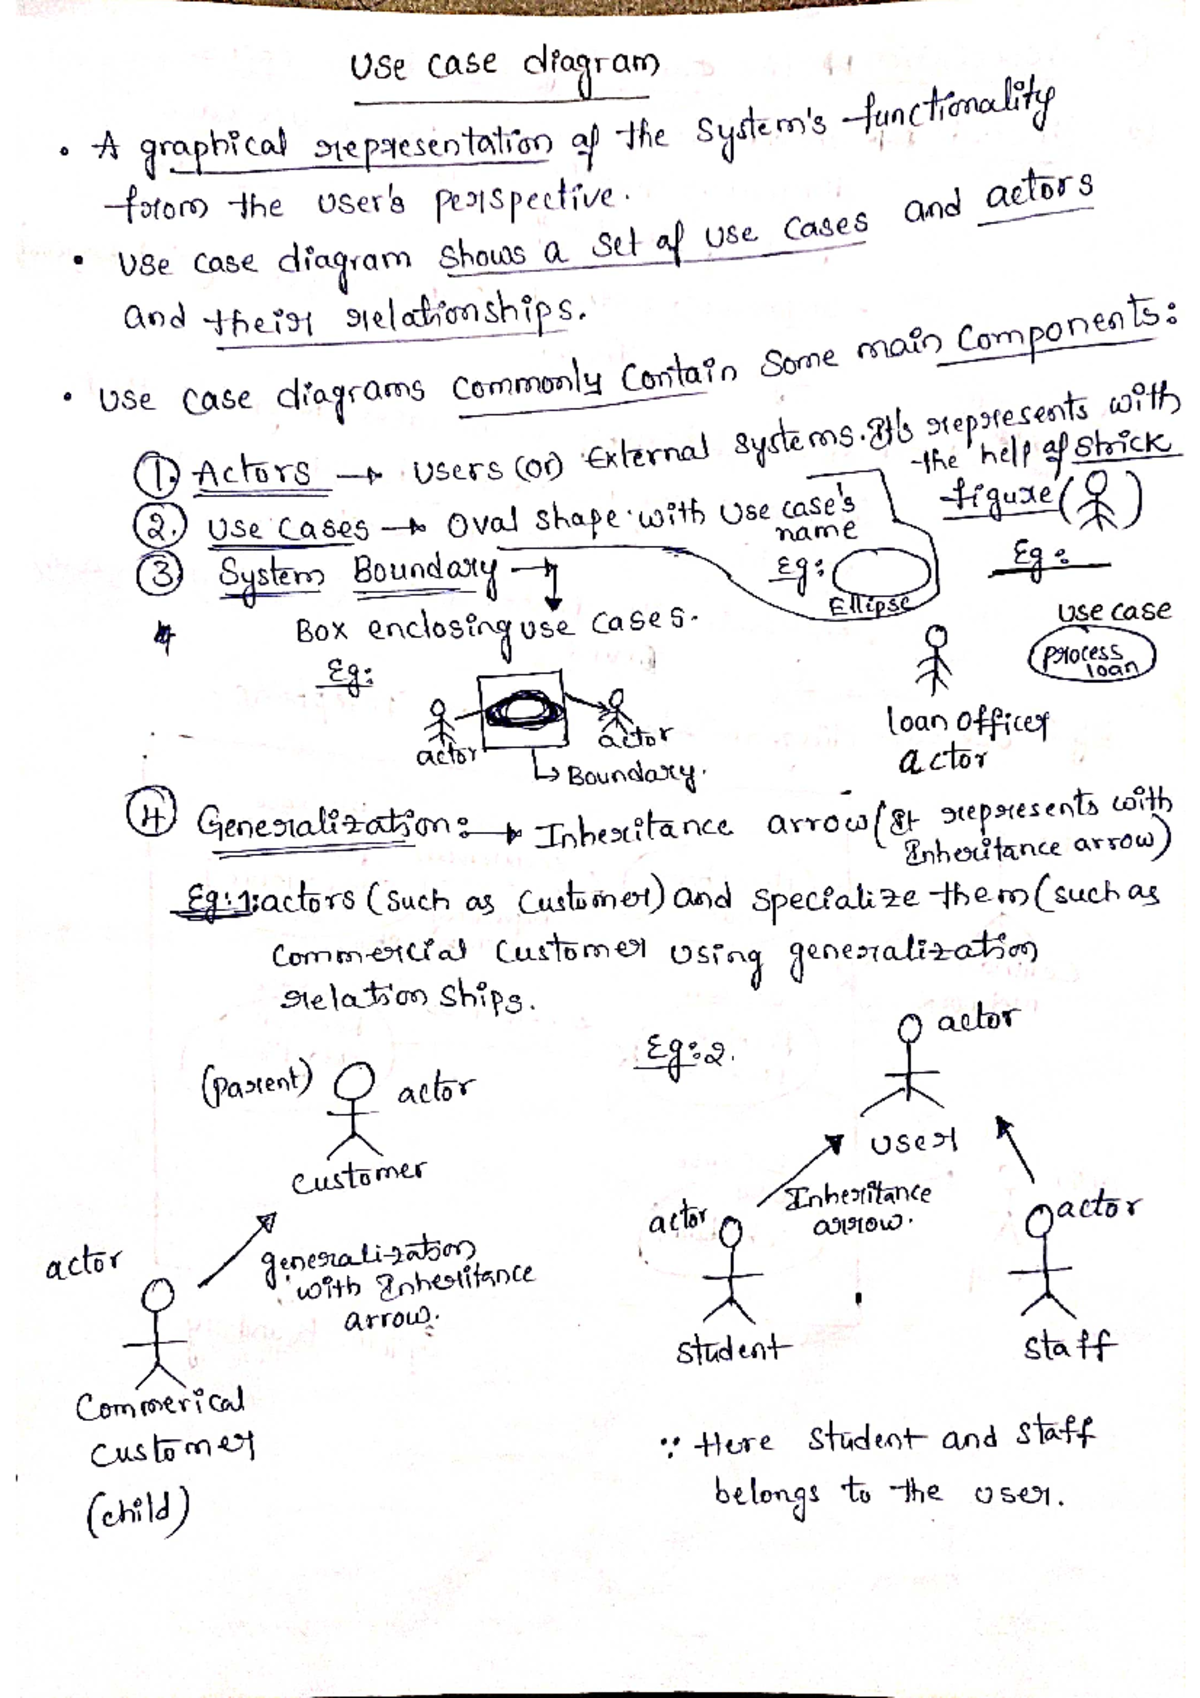 Use case diagram
• A graphical representation of the System's functionality
from the user's perspective.
• Use case diagram shows a set of use cases and actors
and their relationships.
• Use case diagrams commonly contain some main components:
1. Actors → Users (or) External systems. It's represents with
the help of Strick
figure ( )
2. Use Cases → Oval shape with use case's
name
Eg:
Ellipse
Eg:
3 System Boundary →
Box enclosing use cases.
Eg:
actor
actor
Boundary.
use case
process
loan
loan officer
actor
4 Generalization: → Inheritance arrow (It represents with
Inheritance arrow)
Eg:1: actors (such as customer) and specialize them (such as
commercial customer using generalization
relation ships.
(parent) actor
customer
generalization
with Inheritance
arrow.
actor
Commerical
customer
(child)
Eg:2.
actor
user
Inheritance
arrow.
actor
student
actor
staff
∵ Here student and staff
belongs to the user.